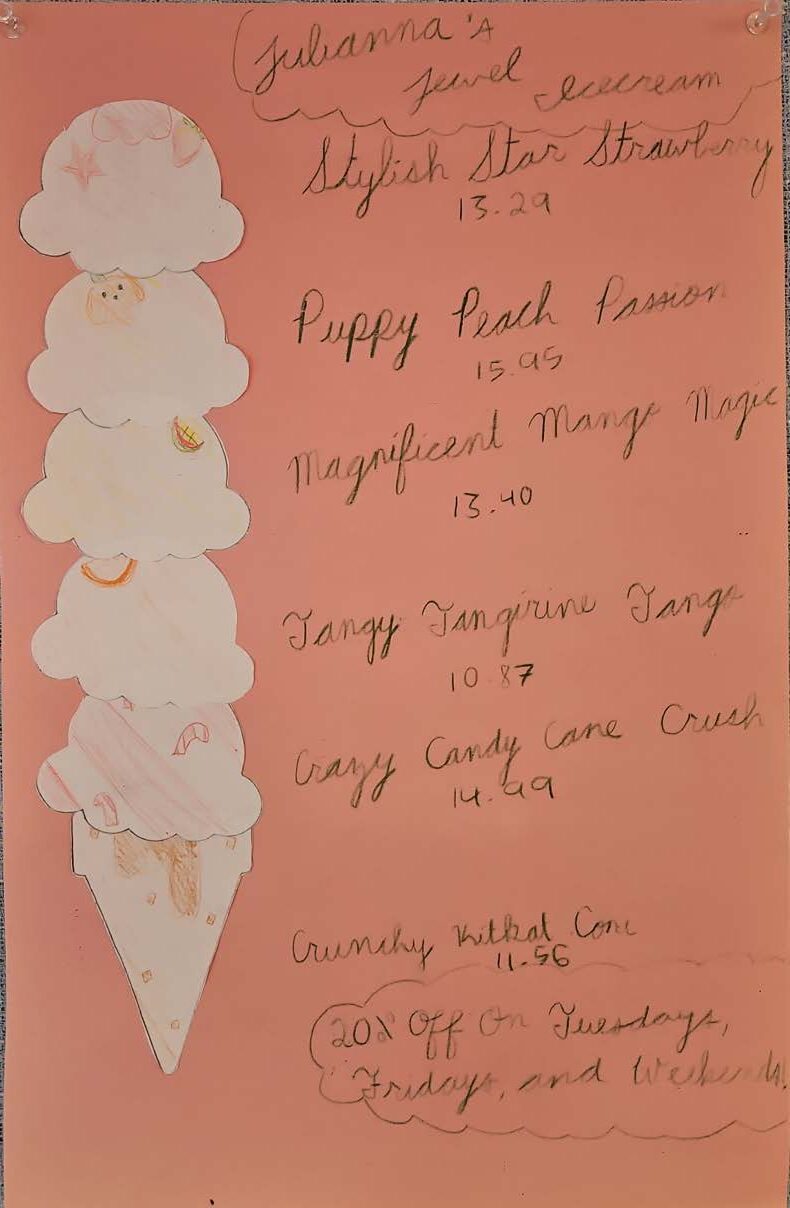 Julianna's
Jewel Icecream
Stylish Star Strawberry
13.29
Puppy Peach Passion
15.95
Magnificent Mango Magic
13.40
Tangy Tangirine Tango
10.87
Crazy Candy Cane Crush
14.99
Crunchy Kitkat Cone
11.56
20% Off On Tuesdays,
Fridays, and Weekends!